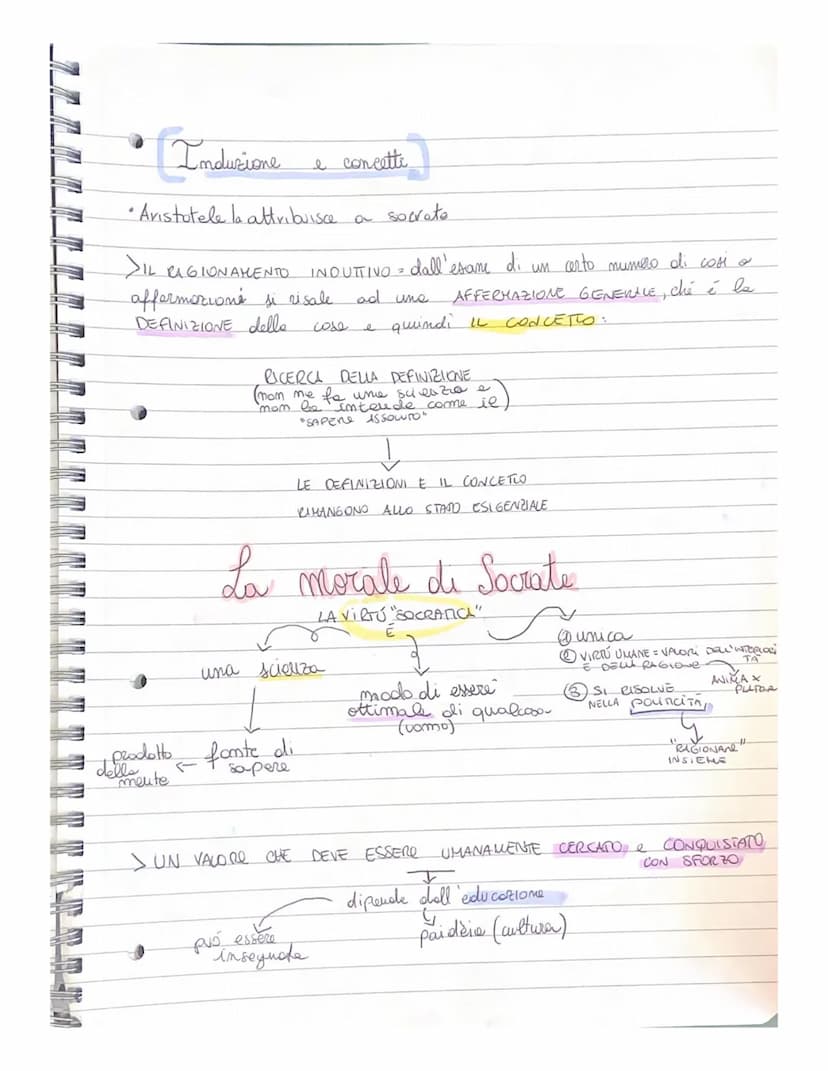 Induzione e concetti
• Aristotele la attribuisce a socrate
>IL RAGIONAMENTO INDUTTIVO = dall'esame di un certo numero di casi o
affermazioni si risale ad una AFFERMAZIONE GENERALE, ché é la
DEFINIZIONE della cosa e quindi IL CONCETTO:
RICERCA DELLA DEFINIZIONE
(non ne fa una scienza e
non la intende come il)
"SAPERE ASSOLUTO"
LE DEFINIZIONI E IL CONCETTO
RIMANGONO ALLO STADIO ESIGENZIALE
La morale di Socrate
LA VIRTÚ "SOCRATICA"
É
una scienza
fonte di
sapere
prodotto
della
mente
modo di essere
ottimale di qualcosa
(uomo)
① unica
② VIRTÚ UMANE = VALORI DELL'INTERIORI
TÀ
E DELLA RAGIONE
ANIMA X
PLATONE
③ SI RISOLVE
NELLA POLITICITÀ
"RAGIONARE"
INSIEME
> UN VALORE CHE DEVE ESSERE UMANAMENTE CERCATO e CONQUISTATO
CON SFORZO
dipende dall'educazione
può essere
insegnata
paidèia (cultura)